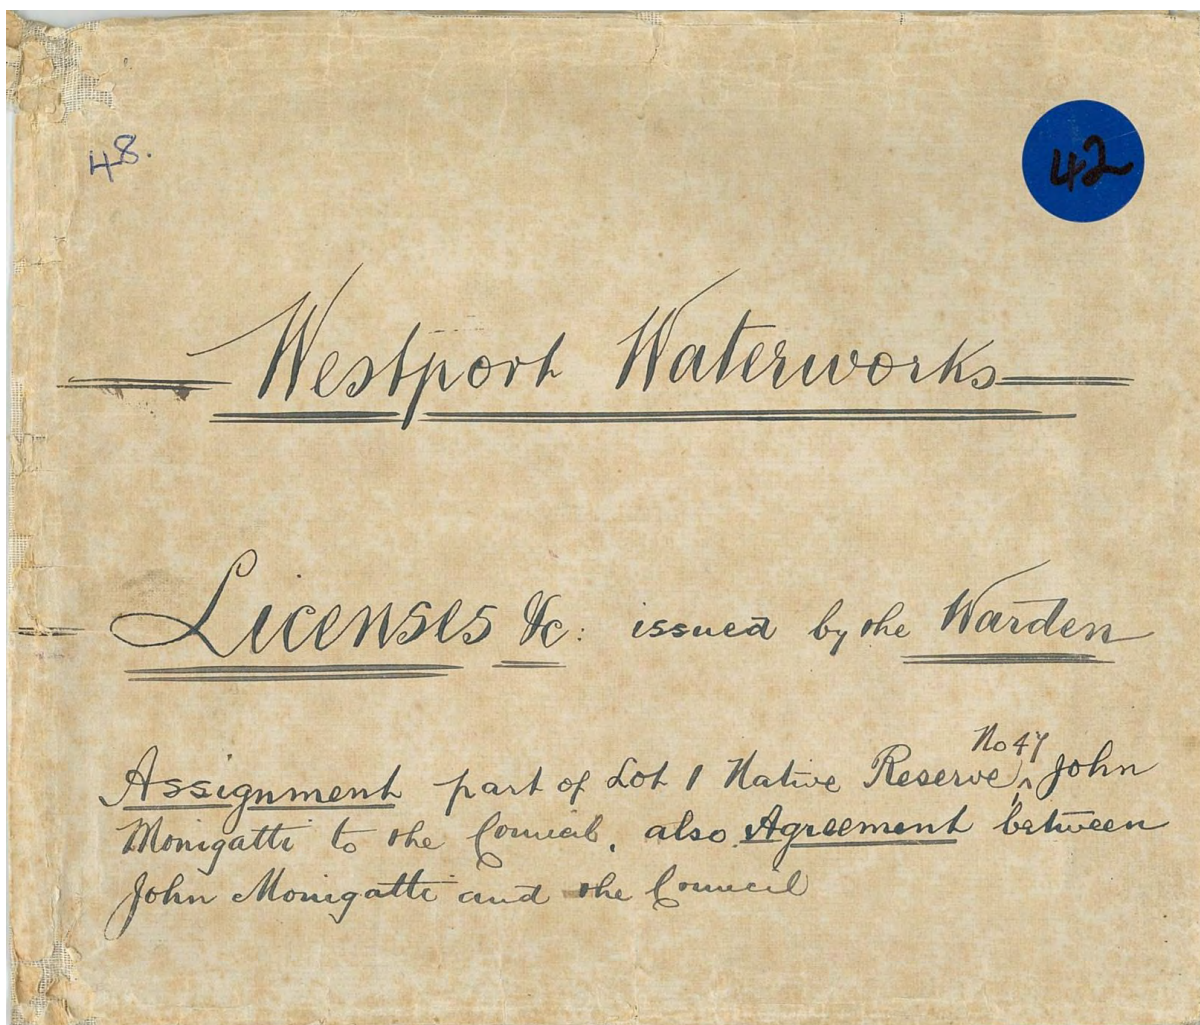 48.
42
Westport Waterworks
Licenses &c: issued by the Warden
Assignment part of Lot 1 Native Reserve, No 47 John
Monigatti to the Council, also Agreement between
John Monigatti and the Council